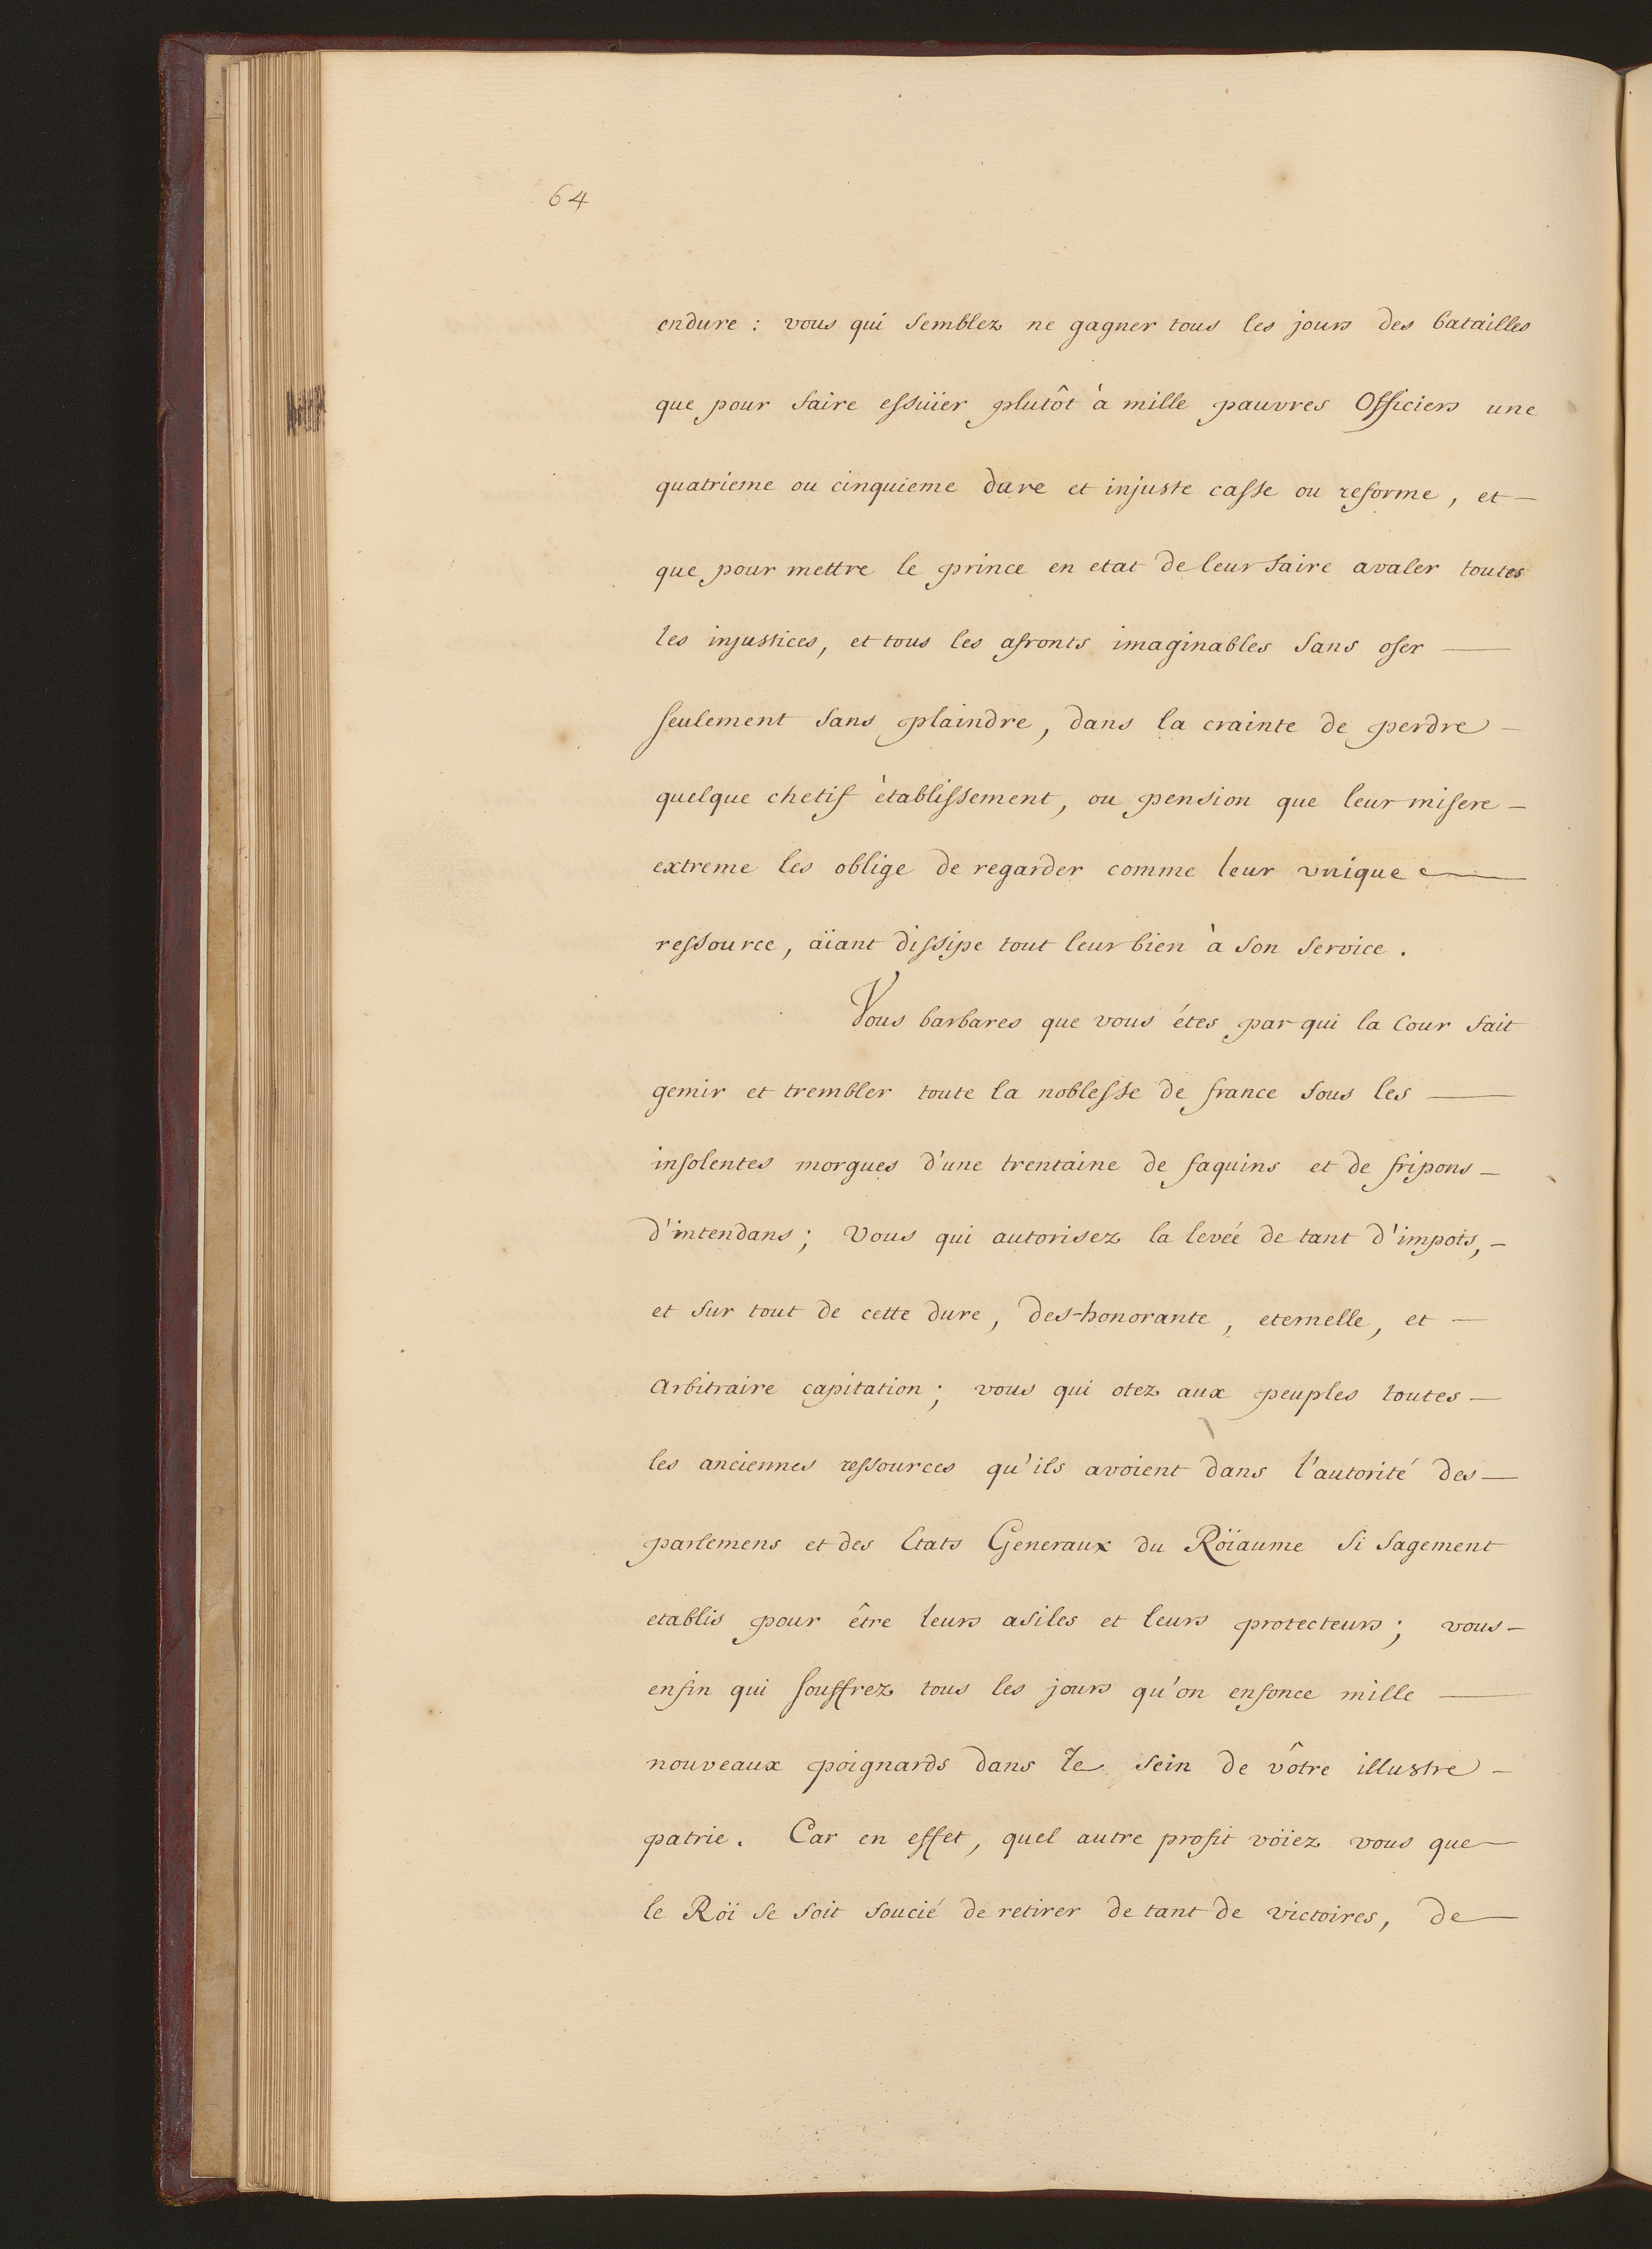 64
endure : vous qui semblez ne gagner tous les jours des batailles
que pour faire essuïer plutôt à mille pauvres Officiers une
quatrieme ou cinquieme dure et injuste casse ou reforme, et —
que pour mettre le prince en etat de leur faire avaler toutes
les injustices, et tous les afronts imaginables sans oser —
seulement sans plaindre, dans la crainte de perdre —
quelque chetif ètablissement, ou pension que leur misere —
extreme les oblige de regarder comme leur unique —
ressource, aïant dissipe tout leur bien à son service.
Vous barbares que vous étes par qui la Cour fait
gemir et trembler toute la noblesse de france sous les —
insolentes morgues d'une trentaine de faquins et de fripons —
d'intendans ; Vous qui autorisez la levée de tant d'impots, —
et sur tout de cette dure, des-honorante, eternelle, et —
arbitraire capitation ; vous qui otez aux peuples toutes —
les anciennes ressources qu'ils avoient dans l'autorité des —
parlemens et des Etats Generaux du Roïaume si sagement
etablis pour être leurs asiles et leurs protecteurs ; vous —
enfin qui souffrez tous les jours qu'on enfonce mille —
nouveaux poignards dans le sein de vôtre illustre —
patrie. Car en effet, quel autre profit voïez vous que —
le Roï se soit soucié de retirer de tant de victoires, de —